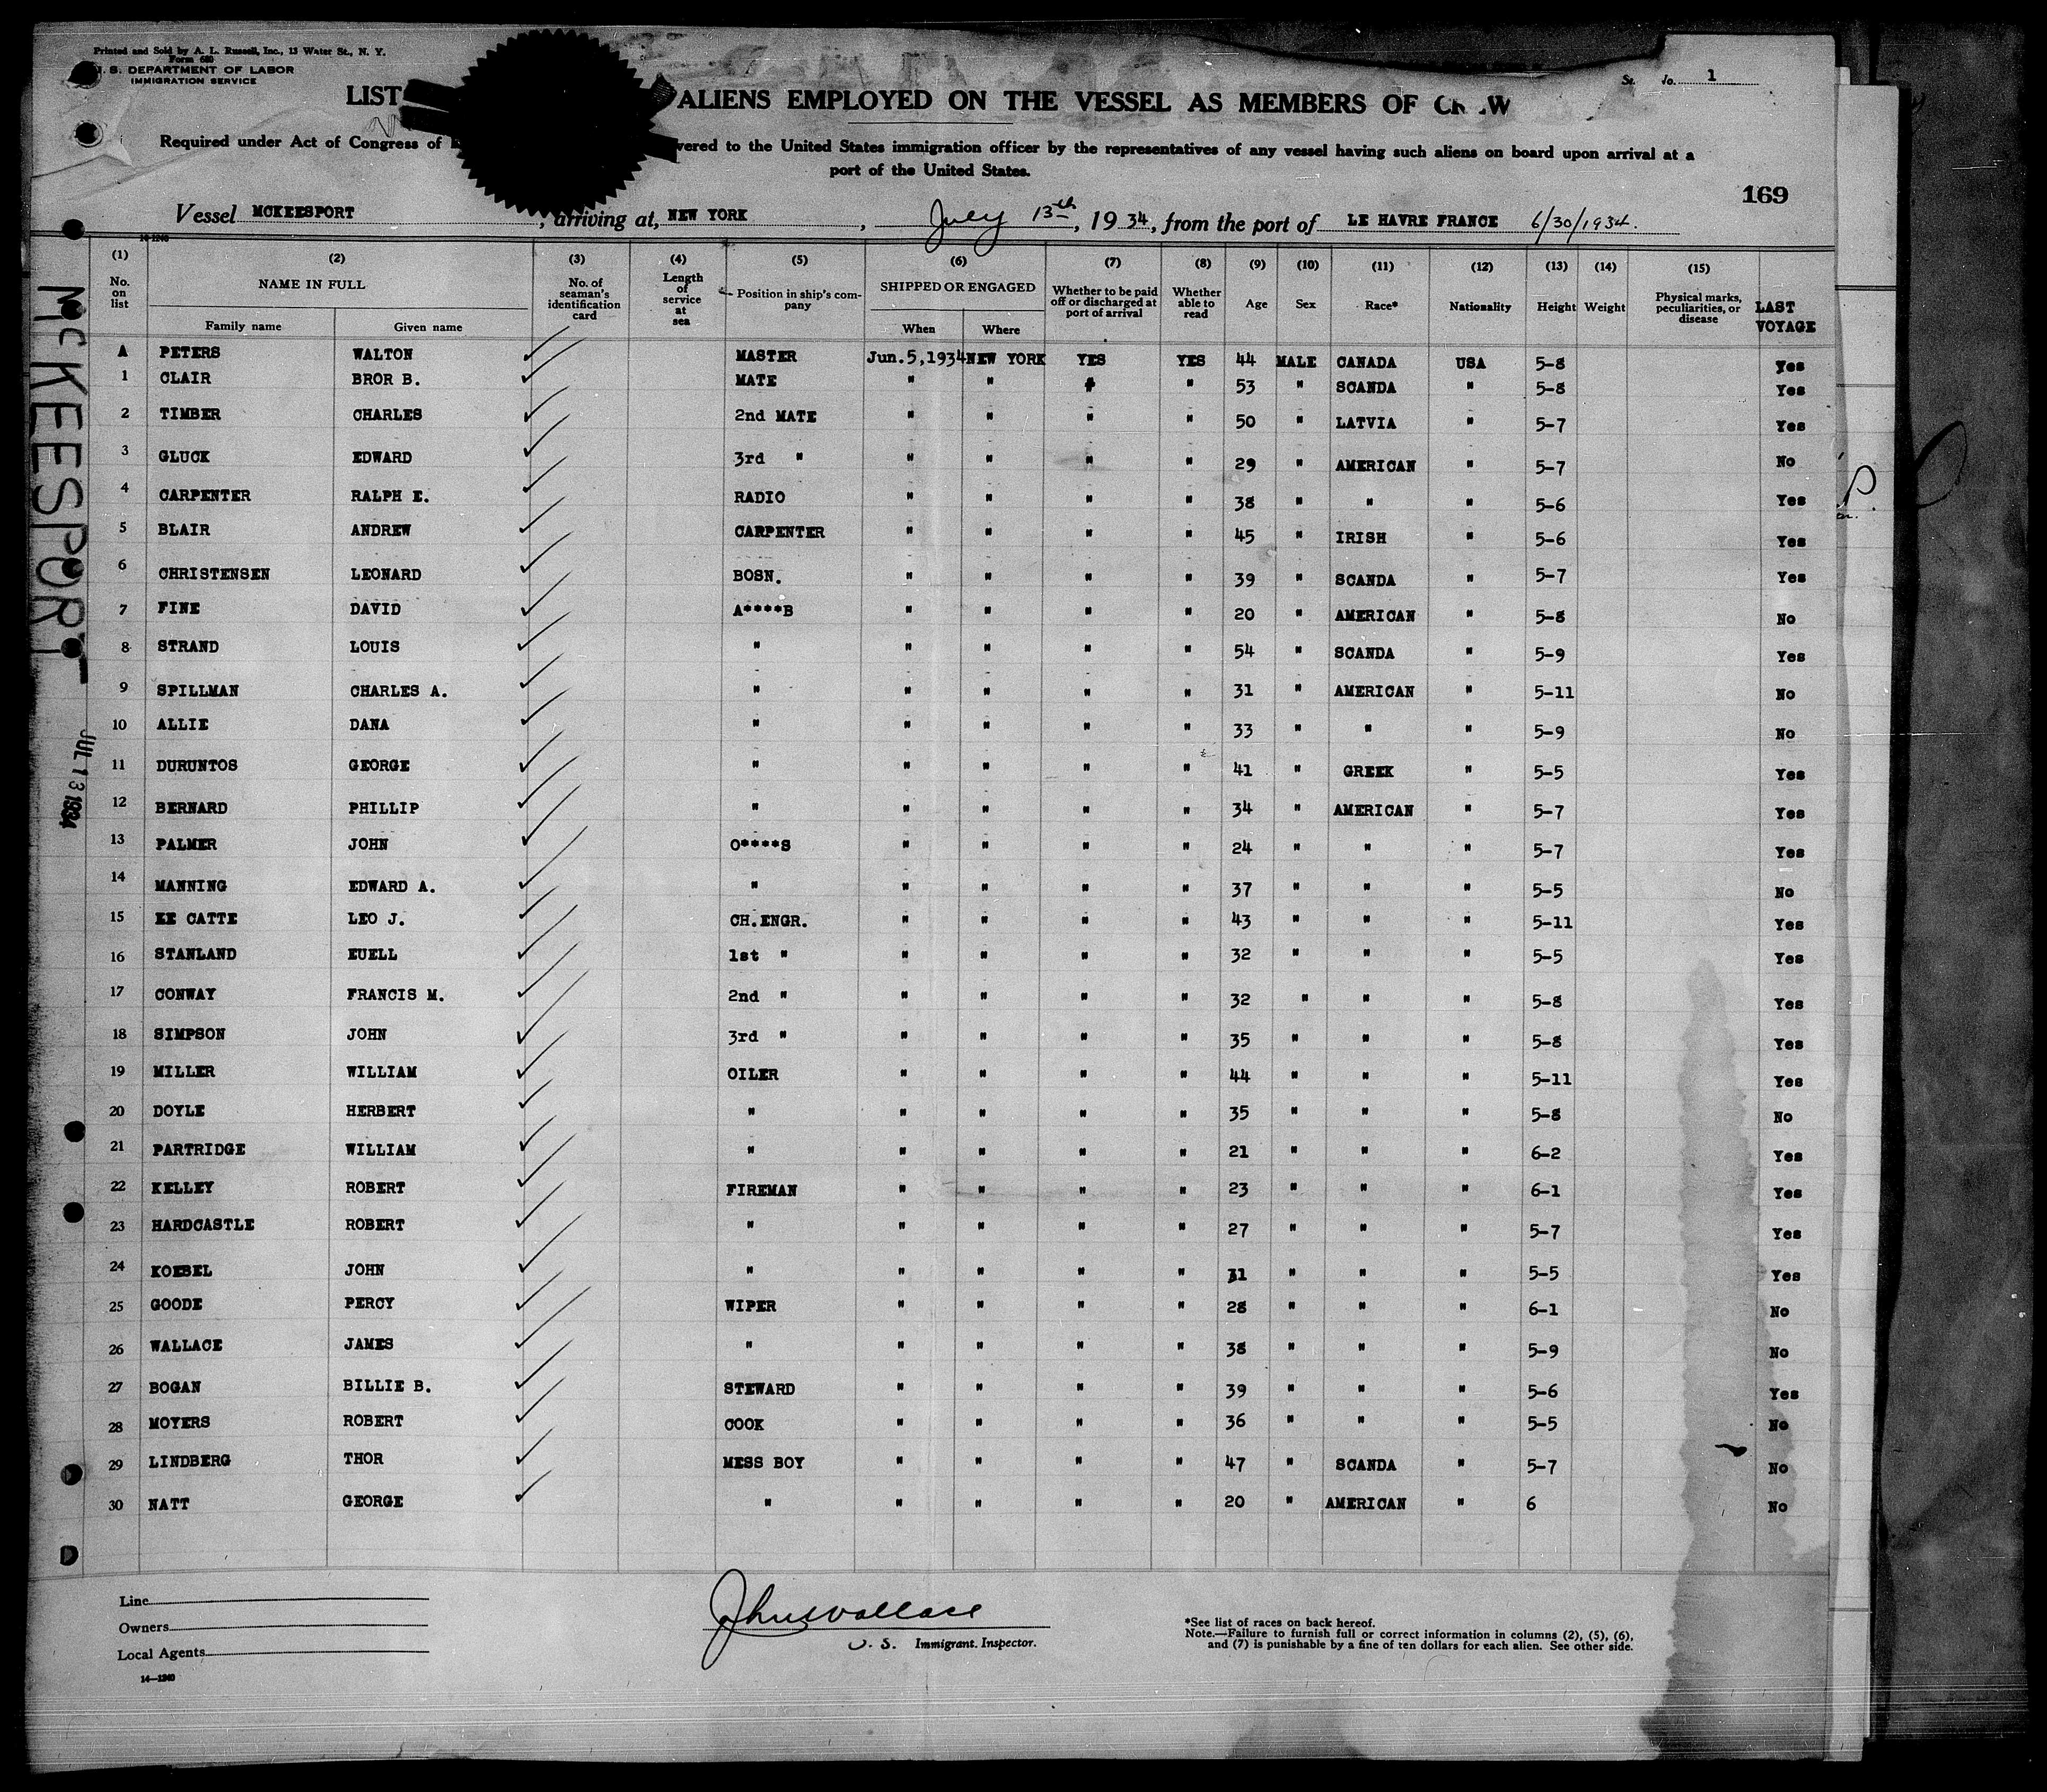 Printed and Sold by A. L. Russell, Inc., 13 Water St., N. Y.
Form 680
U. S. DEPARTMENT OF LABOR
IMMIGRATION SERVICE
No. 1
LIST ALIENS EMPLOYED ON THE VESSEL AS MEMBERS OF CREW
Required under Act of Congress of vered to the United States immigration officer by the representatives of any vessel having such aliens on board upon arrival at a
port of the United States.
169
Vessel MCKEESPORT, arriving at, NEW YORK, July 13th, 1934, from the port of LE HAVRE FRANCE 6/30/1934.
14-1240
(1) (2) (3) (4) (5) (6) (7) (8) (9) (10) (11) (12) (13) (14) (15)
No. on list NAME IN FULL Family name Given name No. of seaman's identification card Length of service at sea Position in ship's company SHIPPED OR ENGAGED When Where Whether to be paid off or discharged at port of arrival Whether able to read Age Sex Race* Nationality Height Weight Physical marks, peculiarities, or disease LAST VOYAGE
A PETERS WALTON MASTER Jun.5,1934 NEW YORK YES YES 44 MALE CANADA USA 5-8 Yes
1 CLAIR BROR B. MATE " " " " 53 " SCANDA " 5-8 Yes
2 TIMBER CHARLES 2nd MATE " " " " 50 " LATVIA " 5-7 Yes
3 GLUCK EDWARD 3rd " " " " " 29 " AMERICAN " 5-7 No
4 CARPENTER RALPH E. RADIO " " " " 38 " " " 5-6 Yes
5 BLAIR ANDREW CARPENTER " " " " 45 " IRISH " 5-6 Yes
6 CHRISTENSEN LEONARD BOSN. " " " " 39 " SCANDA " 5-7 Yes
7 FINE DAVID A****B " " " " 20 " AMERICAN " 5-8 No
8 STRAND LOUIS " " " " " 54 " SCANDA " 5-9 Yes
9 SPILLMAN CHARLES A. " " " " " 31 " AMERICAN " 5-11 No
10 ALLIE DANA " " " " " 33 " " " 5-9 No
11 DURUNTOS GEORGE " " " " " 41 " GREEK " 5-5 Yes
12 BERNARD PHILLIP " " " " " 34 " AMERICAN " 5-7 Yes
13 PALMER JOHN O****S " " " " 24 " " " 5-7 Yes
14 MANNING EDWARD A. " " " " " 37 " " " 5-5 No
15 KE CATTE LEO J. CH.ENGR. " " " " 43 " " " 5-11 Yes
16 STANLAND EUELL 1st " " " " " 32 " " " 5-5 Yes
17 CONWAY FRANCIS M. 2nd " " " " " 32 " " " 5-8 Yes
18 SIMPSON JOHN 3rd " " " " " 35 " " " 5-8 Yes
19 MILLER WILLIAM OILER " " " " 44 " " " 5-11 Yes
20 DOYLE HERBERT " " " " " 35 " " " 5-8 No
21 PARTRIDGE WILLIAM " " " " " 21 " " " 6-2 Yes
22 KELLEY ROBERT FIREMAN " " " " 23 " " " 6-1 Yes
23 HARDCASTLE ROBERT " " " " " 27 " " " 5-7 Yes
24 KOEBEL JOHN " " " " " 31 " " " 5-5 Yes
25 GOODE PERCY WIPER " " " " 28 " " " 6-1 No
26 WALLACE JAMES " " " " " 38 " " " 5-9 No
27 BOGAN BILLIE B. STEWARD " " " " 39 " " " 5-6 Yes
28 MOYERS ROBERT COOK " " " " 36 " " " 5-5 No
29 LINDBERG THOR MESS BOY " " " " 47 " SCANDA " 5-7 No
30 NATT GEORGE " " " " " 20 " AMERICAN " 6 No
MCKEESPORT
JUL 13 1934
Line
Owners
Local Agents
14-1240
John Wallace
U. S. Immigrant Inspector.
*See list of races on back hereof.
Note.—Failure to furnish full or correct information in columns (2), (5), (6),
and (7) is punishable by a fine of ten dollars for each alien. See other side.